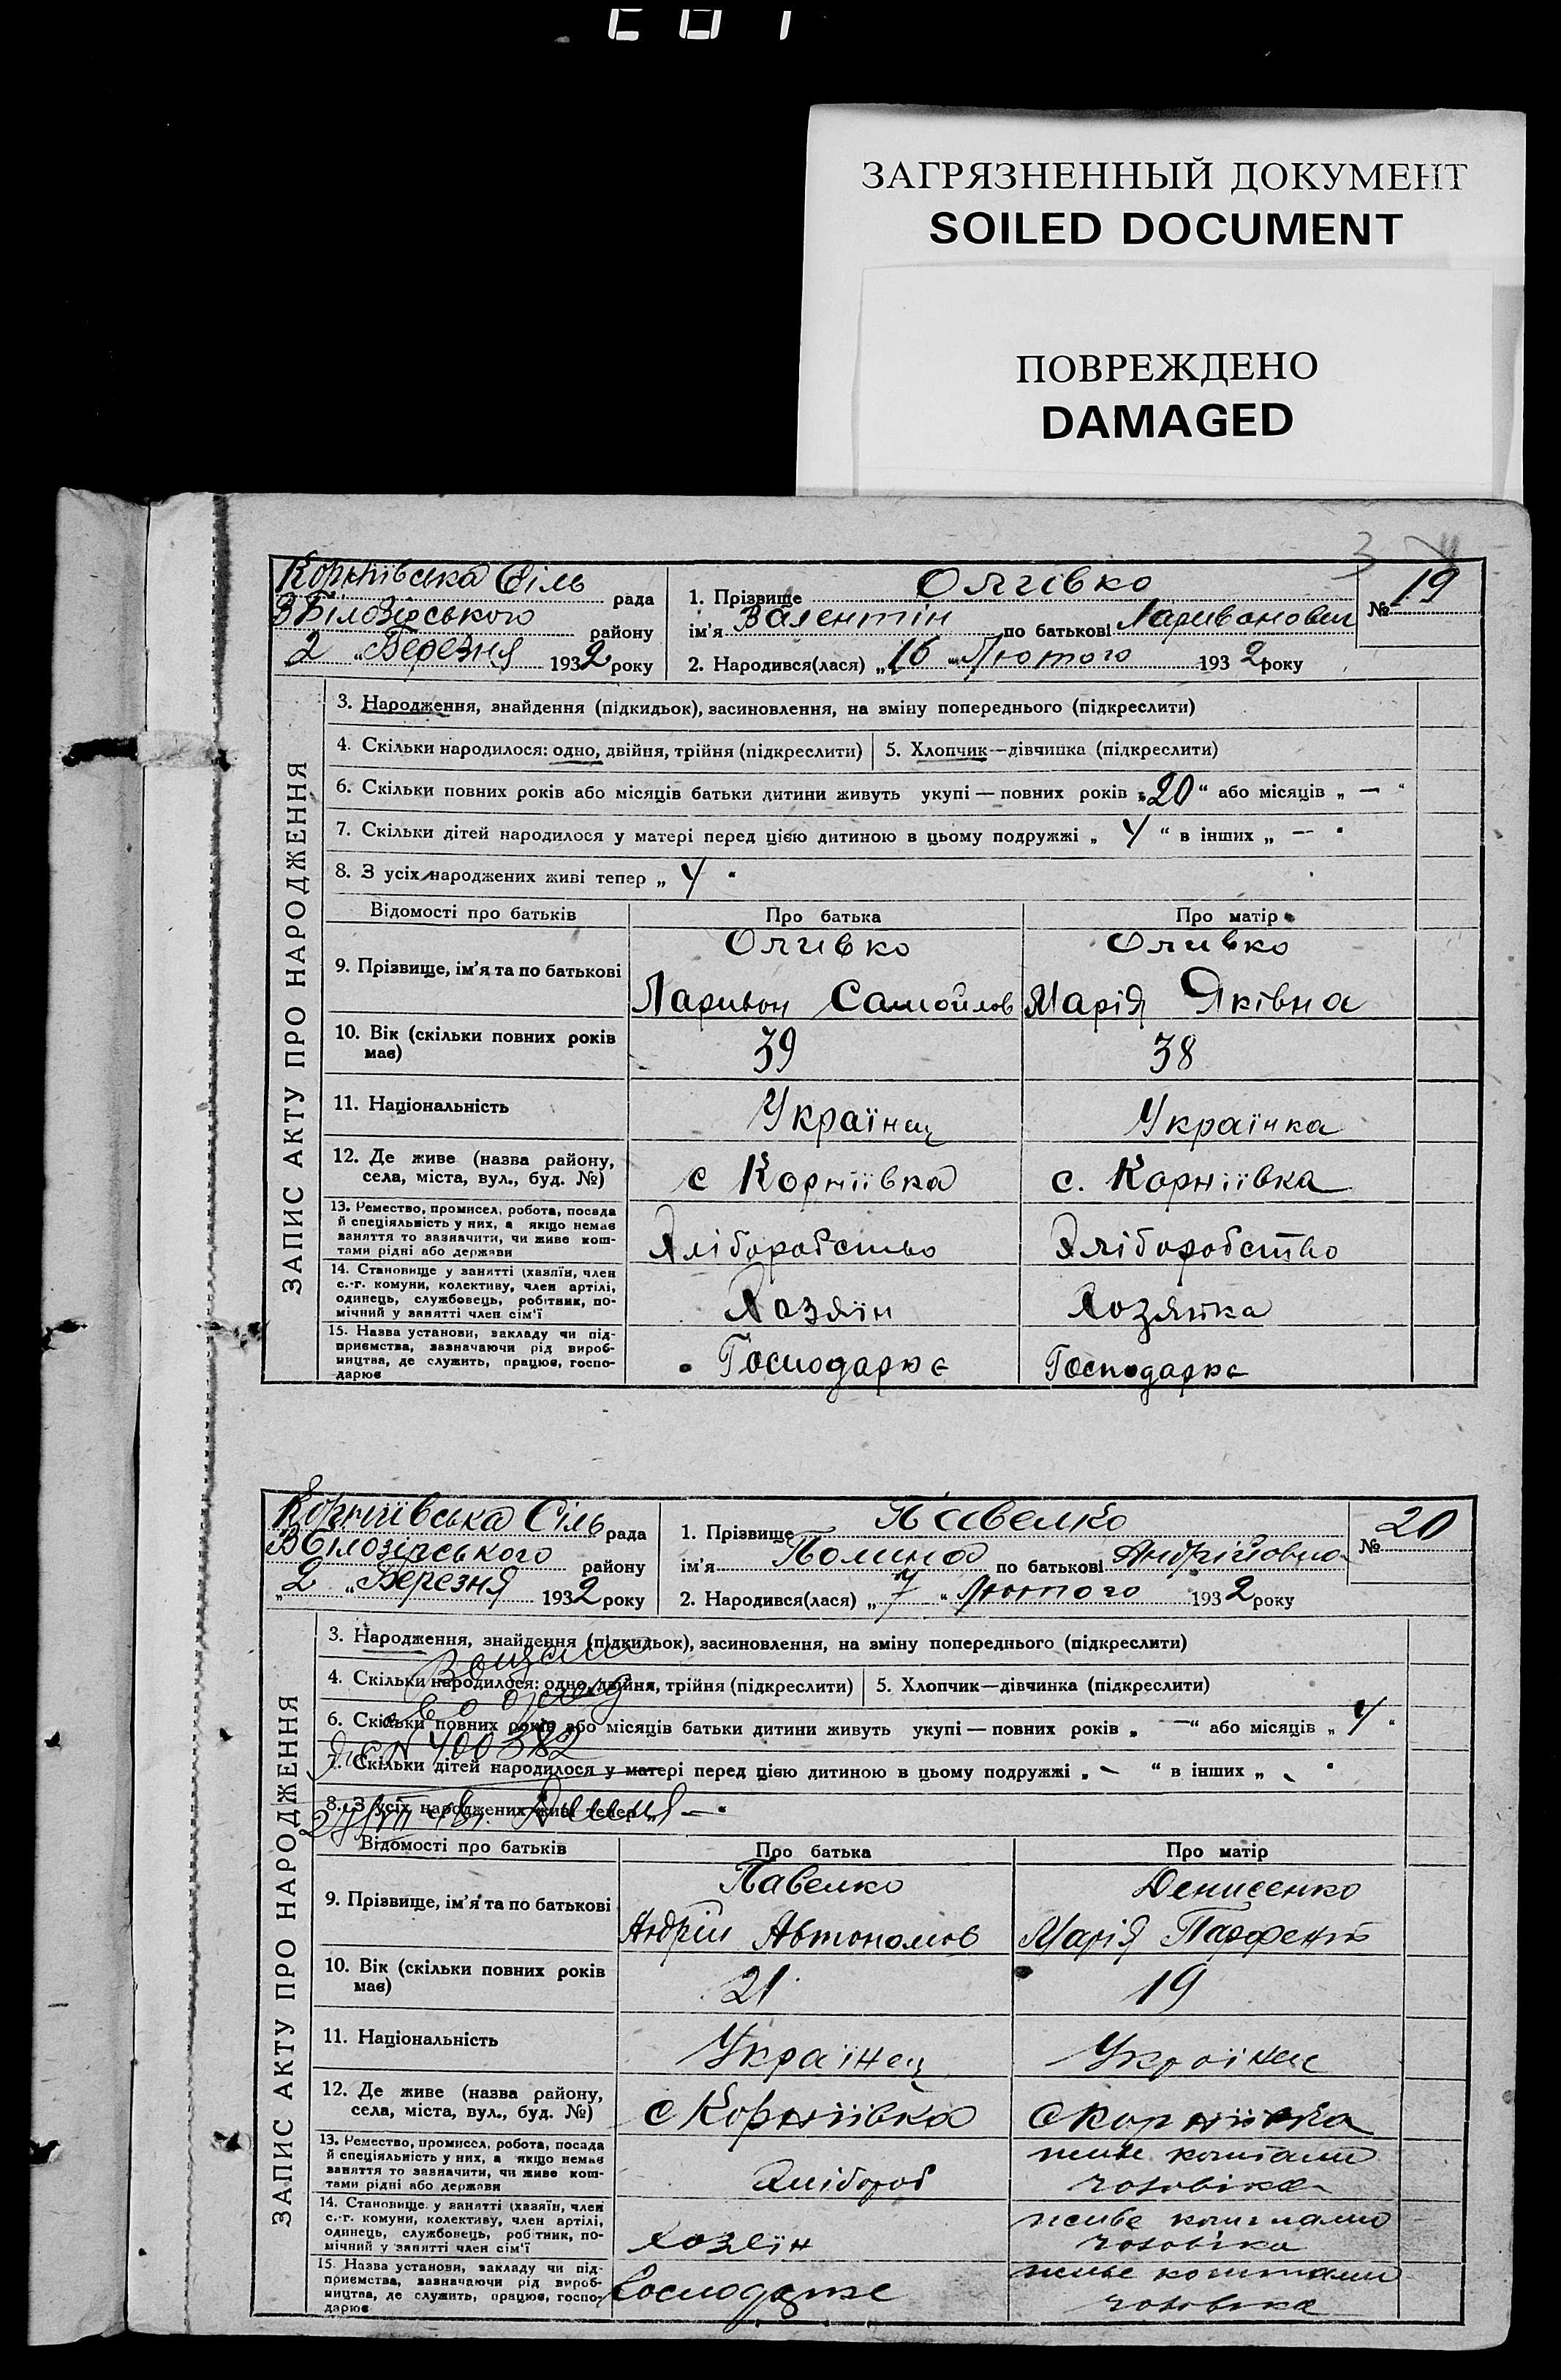 ЗАГРЯЗНЕННЫЙ ДОКУМЕНТ
SOILED DOCUMENT
ПОВРЕЖДЕНО
DAMAGED
Корніївська Сіль рада
В Білозірського району
2 „Березня 1932 року
1. Прізвище Олчівко
ім'я Валентін по батькові Ларивонович
2. Народився(лася) „16 „Лютого 1932 року
№ 19
ЗАПИС АКТУ ПРО НАРОДЖЕННЯ
3. Народження, знайдення (підкидьок), засиновлення, на зміну попереднього (підкреслити)
4. Скільки народилося: одно, двійня, трійня (підкреслити) 5. Хлопчик—дівчинка (підкреслити)
6. Скільки повних років або місяців батьки дитини живуть укупі — повних років „20“ або місяців „ — “
7. Скільки дітей народилося у матері перед цією дитиною в цьому подружжі „ 4 “ в інших „ — “
8. З усіх народжених живі тепер „ 4 “
Відомості про батьків Про батька Про матір
9. Прізвище, ім'я та по батькові
Олчивко Олчивко
Ларивон Самойлов Марія Яківна
10. Вік (скільки повних років має) 39 38
11. Національність Українец Українка
12. Де живе (назва району, села, міста, вул., буд. №) с Корніївка с. Корніївка
13. Ремество, промисел, робота, посада
й спеціяльність у них, а якщо немає
заняття то зазначити, чи живе кош-
тами рідні або держави
Хліборобство Хліборобство
14. Становище у занятті (хазяїн, член
с.-г. комуни, колективу, член артілі,
одинець, службовець, робітник, по-
мічний у занятті член сім'ї
Хозяїн Хозяйка
15. Назва установи, закладу чи під-
приємства, зазначаючи рід вироб-
ництва, де служить, працює, госпо-
дарює
Господарює Господарює
Корніївська Сіль рада
В Білозірського району
„2 „Березня 1932 року
1. Прізвище Павелко
ім'я Полина по батькові Андрійовна
2. Народився(лася) „ 7 “ Лютого 1932 року
№ 20
ЗАПИС АКТУ ПРО НАРОДЖЕННЯ
3. Народження, знайдення (підкидьок), засиновлення, на зміну попереднього (підкреслити)
4. Скільки народилося: одно, двійня, трійня (підкреслити) 5. Хлопчик—дівчинка (підкреслити)
6. Скільки повних років або місяців батьки дитини живуть укупі — повних років „ — “ або місяців „ 4 “
№ 400382
7. Скільки дітей народилося у матері перед цією дитиною в цьому подружжі „ - “ в інших „ - “
8. З усіх народжених живі тепер „ — “
Відомості про батьків Про батька Про матір
9. Прізвище, ім'я та по батькові
Павелко Денисенко
Андрій Автономов Марія Парфент
10. Вік (скільки повних років має) 21 19
11. Національність Українец Українец
12. Де живе (назва району, села, міста, вул., буд. №) с Корніївка с Корніївка
13. Ремество, промисел, робота, посада
й спеціяльність у них, а якщо немає
заняття то зазначити, чи живе кош-
тами рідні або держави
Хлібороб живе коштами чоловіка
14. Становище у занятті (хазяїн, член
с.-г. комуни, колективу, член артілі,
одинець, службовець, робітник, по-
мічний у занятті член сім'ї
Хозеїн живе коштами чоловіка
15. Назва установи, закладу чи під-
приємства, зазначаючи рід вироб-
ництва, де служить, працює, госпо-
дарює
Господарює живе коштами чоловіка